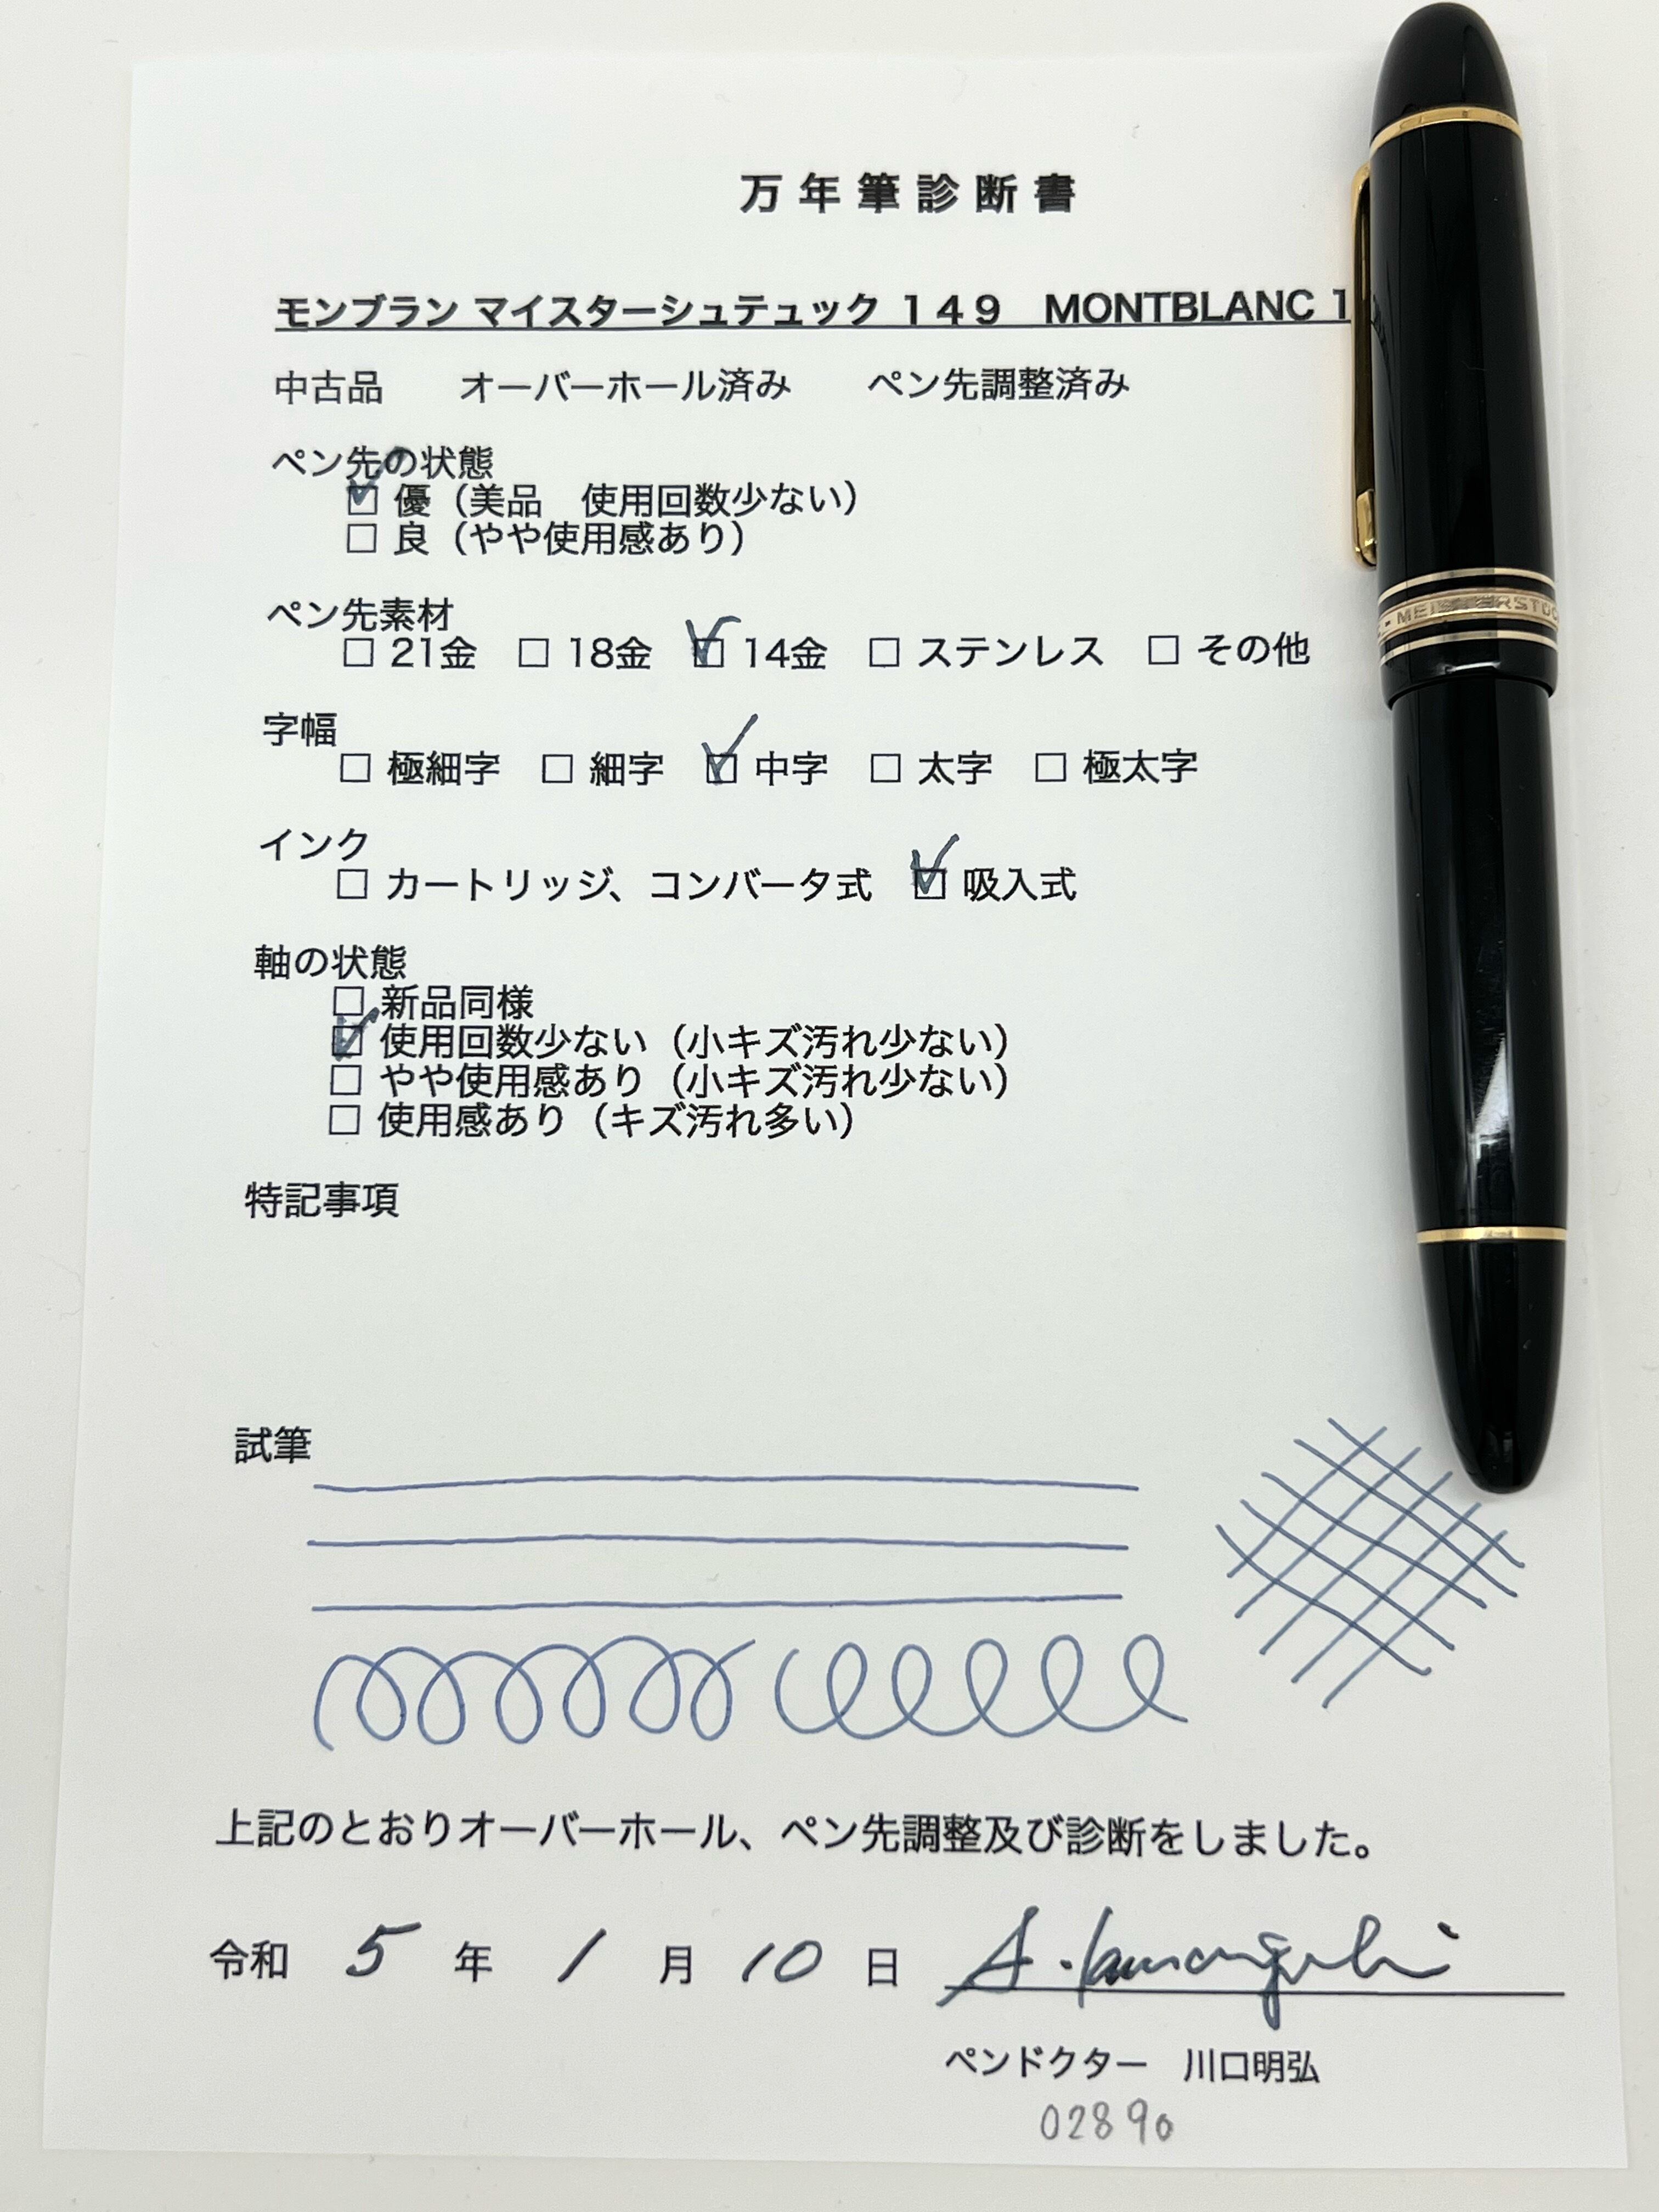 万年筆診断書
モンブラン マイスターシュテュック １４９　MONTBLANC 1
中古品　　オーバーホール済み　　ペン先調整済み
ペン先の状態
☑ 優（美品　使用回数少ない）
☐ 良（やや使用感あり）
ペン先素材
☐ 21金　☐ 18金　☑ 14金　☐ ステンレス　☐ その他
字幅
☐ 極細字　☐ 細字　☑ 中字　☐ 太字　☐ 極太字
インク
☐ カートリッジ、コンバータ式　☑ 吸入式
軸の状態
☐ 新品同様
☑ 使用回数少ない（小キズ汚れ少ない）
☐ やや使用感あり（小キズ汚れ少ない）
☐ 使用感あり（キズ汚れ多い）
特記事項
試筆
上記のとおりオーバーホール、ペン先調整及び診断をしました。
令和 5 年 1 月 10 日
ペンドクター　川口明弘
02890
- MEISTERSTÜC